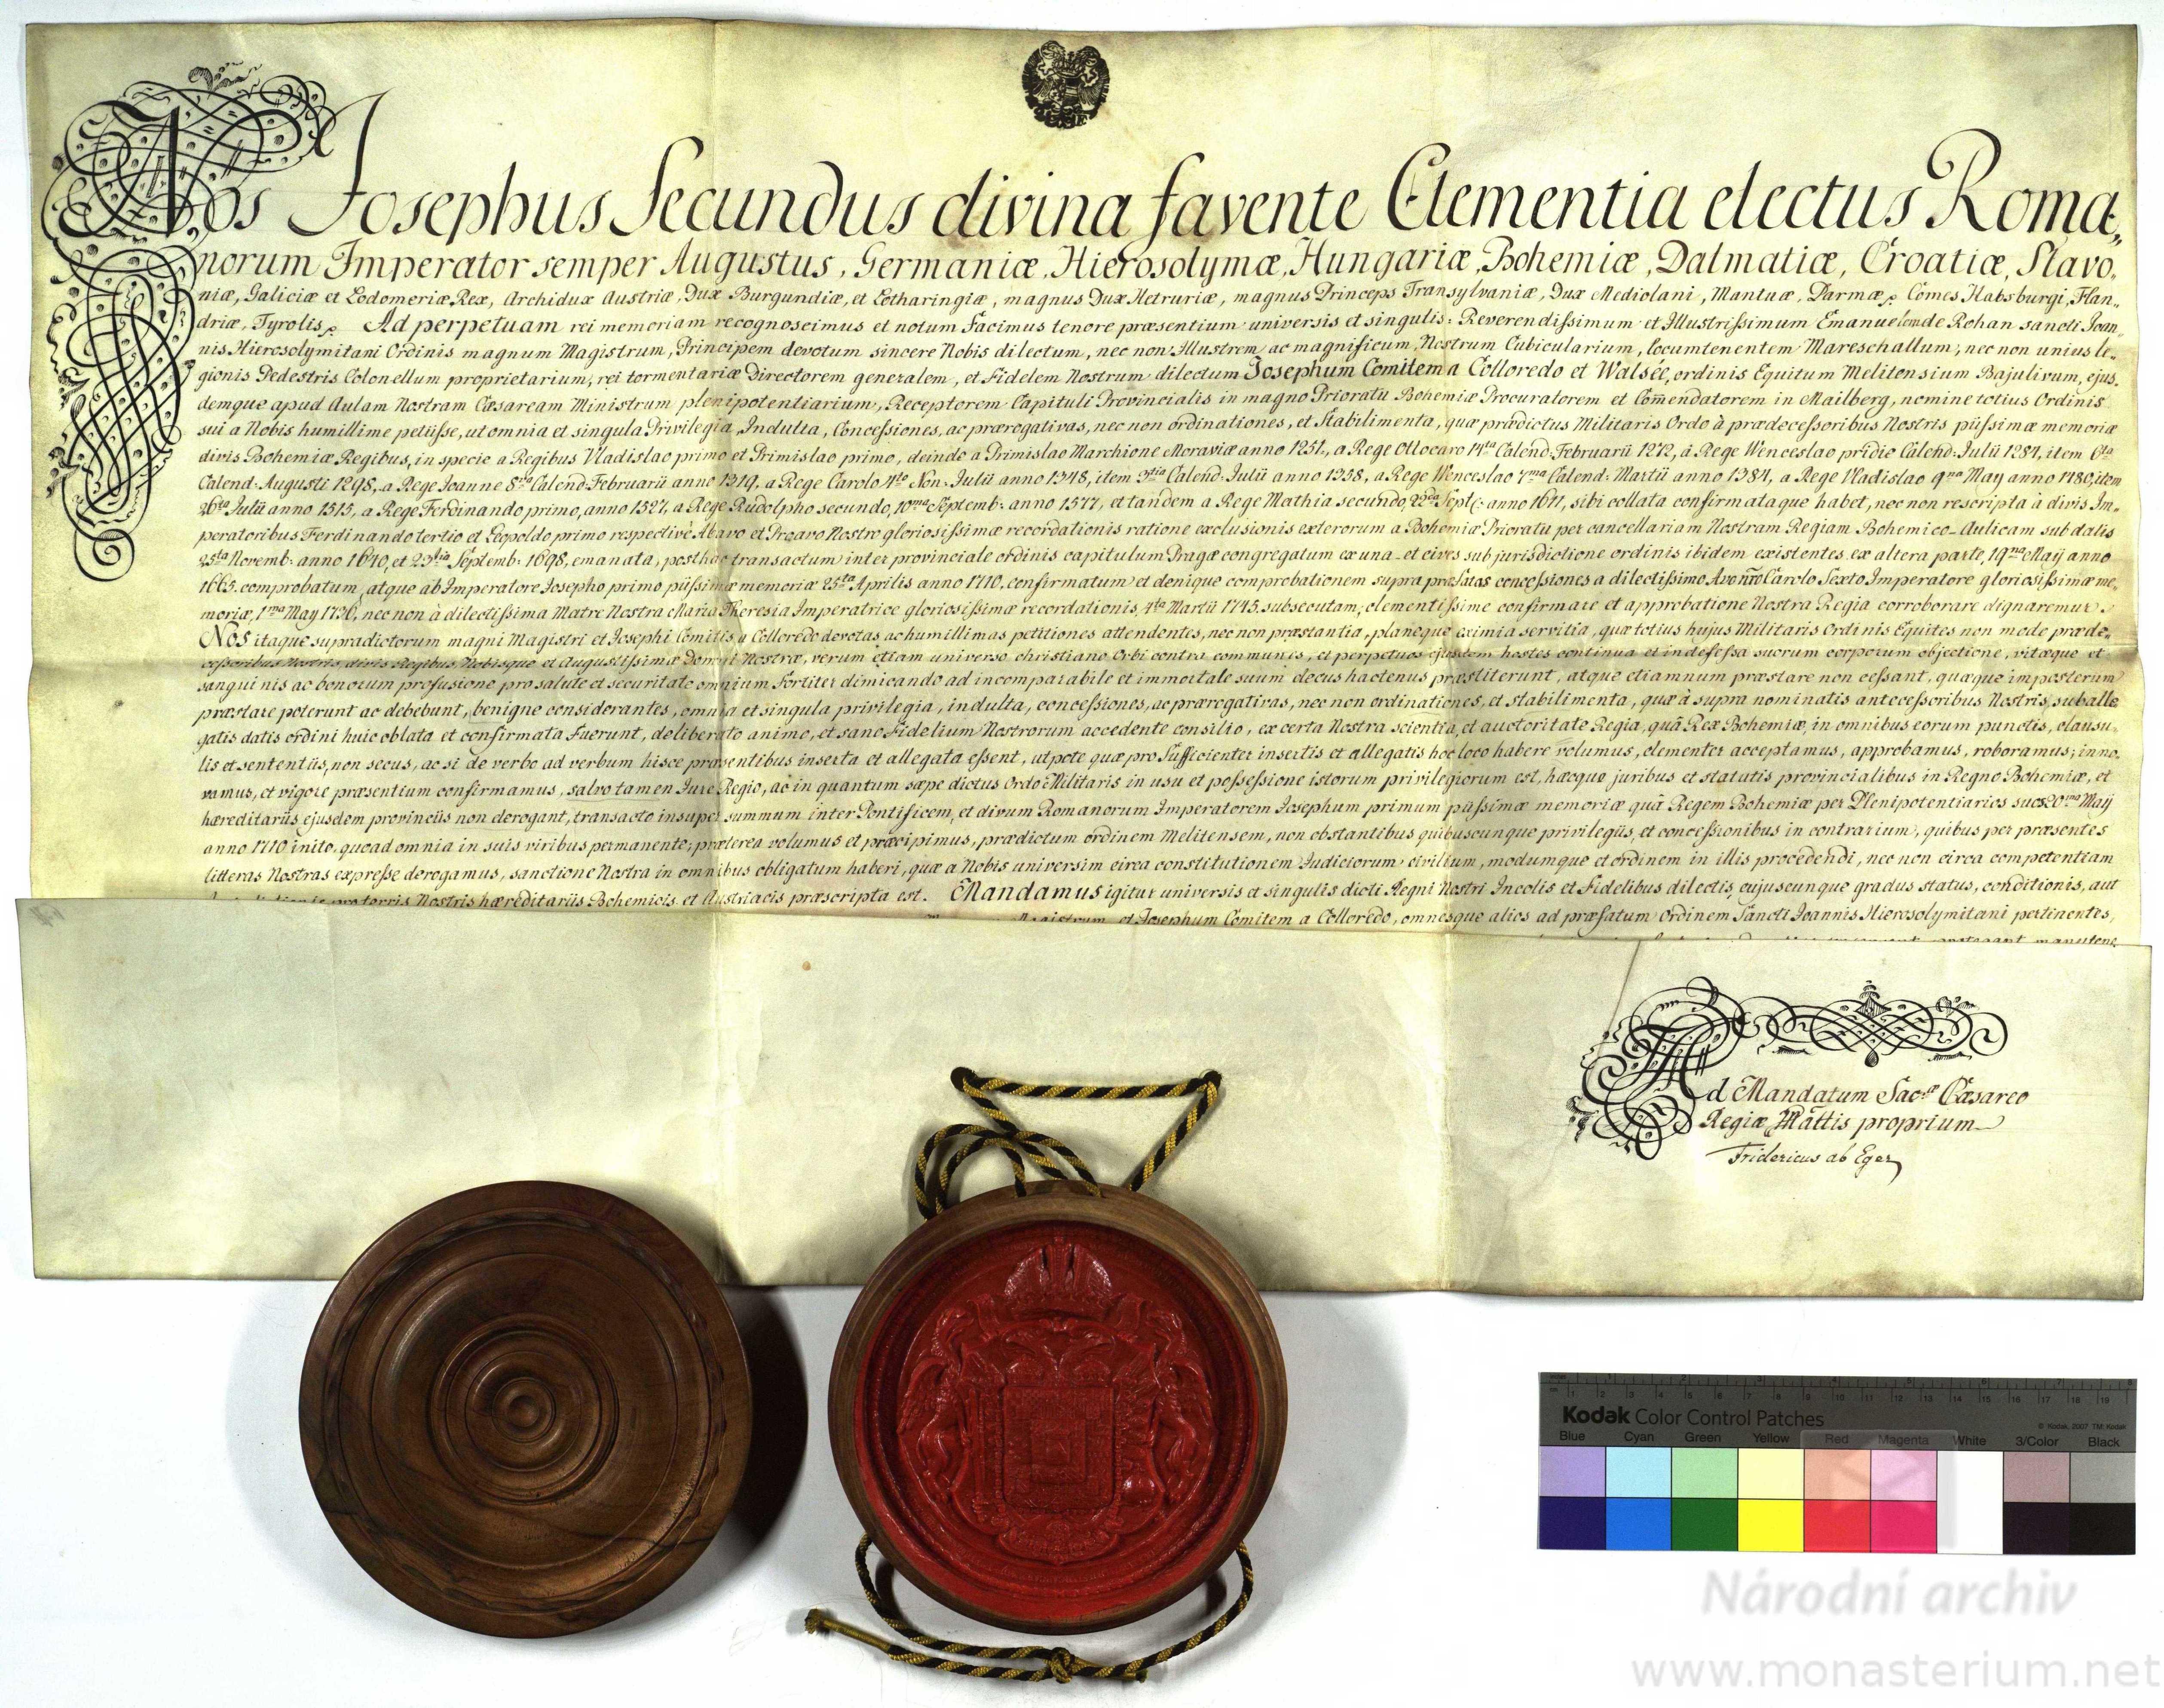 Nos Josephus Secundus divina favente Clementia electus Roma,,
norum Imperator semper Augustus, Germaniæ, Hierosolymæ, Hungariæ, Bohemiæ, Dalmatiæ, Croatiæ, Slavo,,
niæ, Galiciæ et Lodomeriæ Rex, Archidux Austriæ, Dux Burgundiæ, et Lotharingiæ, magnus Dux Hetruriæ, magnus Princeps Transylvaniæ, Dux Mediolani, Mantuæ, Parmæ, Comes Habsburgi, Flan,,
driæ, Tyrolis, Ad perpetuam rei memoriam recognoscimus et notum facimus tenore præsentium universis et singulis: Reverendissimum et Illustrissimum Emanuelem de Rohan sancti Joan,,
nis Hierosolymitani Ordinis magnum Magistrum, Principem devotum sincere Nobis dilectum, nec non Illustrem ac magnificum, Nostrum Cubicularium, locumtenentem Mareschallum, nec non unius le,,
gionis Pedestris Colonellum proprietarium, rei tormentariæ Directorem generalem, et Fidelem Nostrum dilectum Josephum Comitem a Colloredo et Walsee, ordinis Equitum Melitensium Bajulivum, ejus,,
demque apud Aulam Nostram Cæsaream Ministrum plenipotentiarium, Receptorem Capituli Provincialis in magno Prioratu Bohemiæ Procuratorem et Commendatorem in Mailberg, nomine totius Ordinis
sui a Nobis humillime petiisse, ut omnia et singula Privilegia, Indulta, Concessiones, ac prærogativas, nec non ordinationes, et Stabilimenta, quæ prædictus Militaris Ordo à prædecessoribus Nostris piissimæ memoriæ
divis Bohemiæ Regibus, in specie a Regibus Vladislao primo et Primislao primo, deinde a Primislao Marchione Moraviæ anno 1251, a Rege Ottocaro 14ta Calend: Februarii 1272, à Rege Wenceslao pridie Calend: Julii 1281, item 6ta
Calend: Augusti 1298, a Rege Joanne 8va Calend: Februarii anno 1319, a Rege Carolo 4to Non: Julii anno 1348, item 3tia Calend: Julii anno 1358, a Rege Wenceslao 7ma Calend: Martii anno 1384, a Rege Vladislao 9na May anno 1480, item
26ta Julii anno 1515, a Rege Ferdinando primo, anno 1527, a Rege Rudolpho secundo, 10ma Septemb: anno 1577, et tandem a Rege Mathia secundo, 22da Sept: anno 1611, sibi collata confirmataque habet, nec non rescripta à divis Im,,
peratoribus Ferdinando tertio et Leopoldo primo respectivè Abavo et Proavo Nostro gloriosissimæ recordationis ratione exclusionis exterorum a Bohemiæ Prioratu per cancellariam Nostram Regiam Bohemico-Aulicam sub datis
Novemb: anno 1640, et 23tia Septemb: 1698, emanata, posthac transactum inter provinciale ordinis capitulum Pragæ congregatum ex una et cives sub jurisdictione ordinis ibidem existentes ex altera parte, 19na Maij anno
1665 comprobatum, atque ab Imperatore Josepho primo piissimæ memoriæ 25ta Aprilis anno 1710, confirmatum et denique comprobationem supra præfatas concessiones a dilectissimo Avo nro Carolo Sexto Imperatore gloriosissimæ me,,
moriæ, 1ma May nec non à dilectissima Matre Nostra Maria Theresia Imperatrice gloriosissimæ recordationis, 4ta Martii 1745 subsecutam, clementissime confirmare et approbatione Nostra Regia corroborare dignaremur.
Nos itaque supradictorum magni Magistri et Josephi Comitis a Colloredo devotas ac humillimas petitiones attendentes, nec non præstantia, planeque eximia servitia, quæ totius hujus Militaris Ordinis Equites non modo præde,,
cessoribus Nostris, divis Regibus Nobisque et Augustissimæ Domui Nostræ, verum etiam universo christiano Orbi contra communes, et perpetuos ejusdem hostes continua et indefessa suorum corporum objectione, vitæque et
sanguinis ac bonorum profusione pro salute et securitate omnium Fortiter dimicando ad incomparabile et immortale suum decus hactenus præstiterunt, atque etiamnum præstare non cessant, quæque imposterum
præstare poterunt ac debebunt, benigne considerantes, omnia et singula privilegia, indulta, concessiones, ac prærogativas, nec non ordinationes, et stabilimenta, quæ à supra nominatis antecessoribus Nostris, sub alle
gatis datis ordini huic oblata et confirmata fuerunt, deliberato animo, et sano Fidelium Nostrorum accedente consilio, ex certa Nostra scientia, et auctoritate Regia, quâ Rex Bohemiæ, in omnibus eorum punctis, clausu,,
lis et sententiis, non secus, ac si de verbo ad verbum hisce præsentibus inserta et allegata essent, utpote quæ pro sufficienter insertis et allegatis hoc loco habere volumus, clementer acceptamus, approbamus, roboramus, inno,,
vamus, et vigore præsentium confirmamus, salvo tamen Jure Regio, ac in quantum sæpe dictus Ordo Militaris in usu et possessione istorum privilegiorum est, hæcque juribus et statutis provincialibus in Regno Bohemiæ, et
hæreditariis ejusdem provinciis non derogant, transacto insuper summum inter Pontificem, et divum Romanorum Imperatorem Josephum primum piissimæ memoriæ quâ Regem Bohemiæ per Plenipotentiarios suos 20ma Maij
anno 1710 inito, quoad omnia in suis viribus permanente; præterea volumus et præcipimus, prædictum ordinem Melitensem, non obstantibus quibuscunque privilegiis, et concessionibus in contrarium, quibus per præsentes
litteras Nostras expresse derogamus, sanctione Nostra in omnibus obligatum haberi, quæ a Nobis universim circa constitutionem Judiciorum civilium, modumque et ordinem in illis procedendi, nec non circa competentiam
pro terris Nostris hæreditariis Bohemicis et Austriacis præscripta est. Mandamus igitur universis et singulis dicti Regni Nostri Incolis et Fidelibus dilectis, cujuscunque gradus status, conditionis, aut
Magistrum, et Josephum Comitem a Colloredo, omnesque alios ad præfatum Ordinem Sancti Joannis Hierosolymitani pertinentes,
manutene
Ad Mandatum Sacæ Cæsareo
Regiæ Mattis proprium
Fridericus ab Eger
Kodak Color Control Patches
© Kodak, 2007 TM: Kodak
Blue Cyan Green Yellow Red Magenta White 3/Color Black
Národní archiv
www.monasterium.net